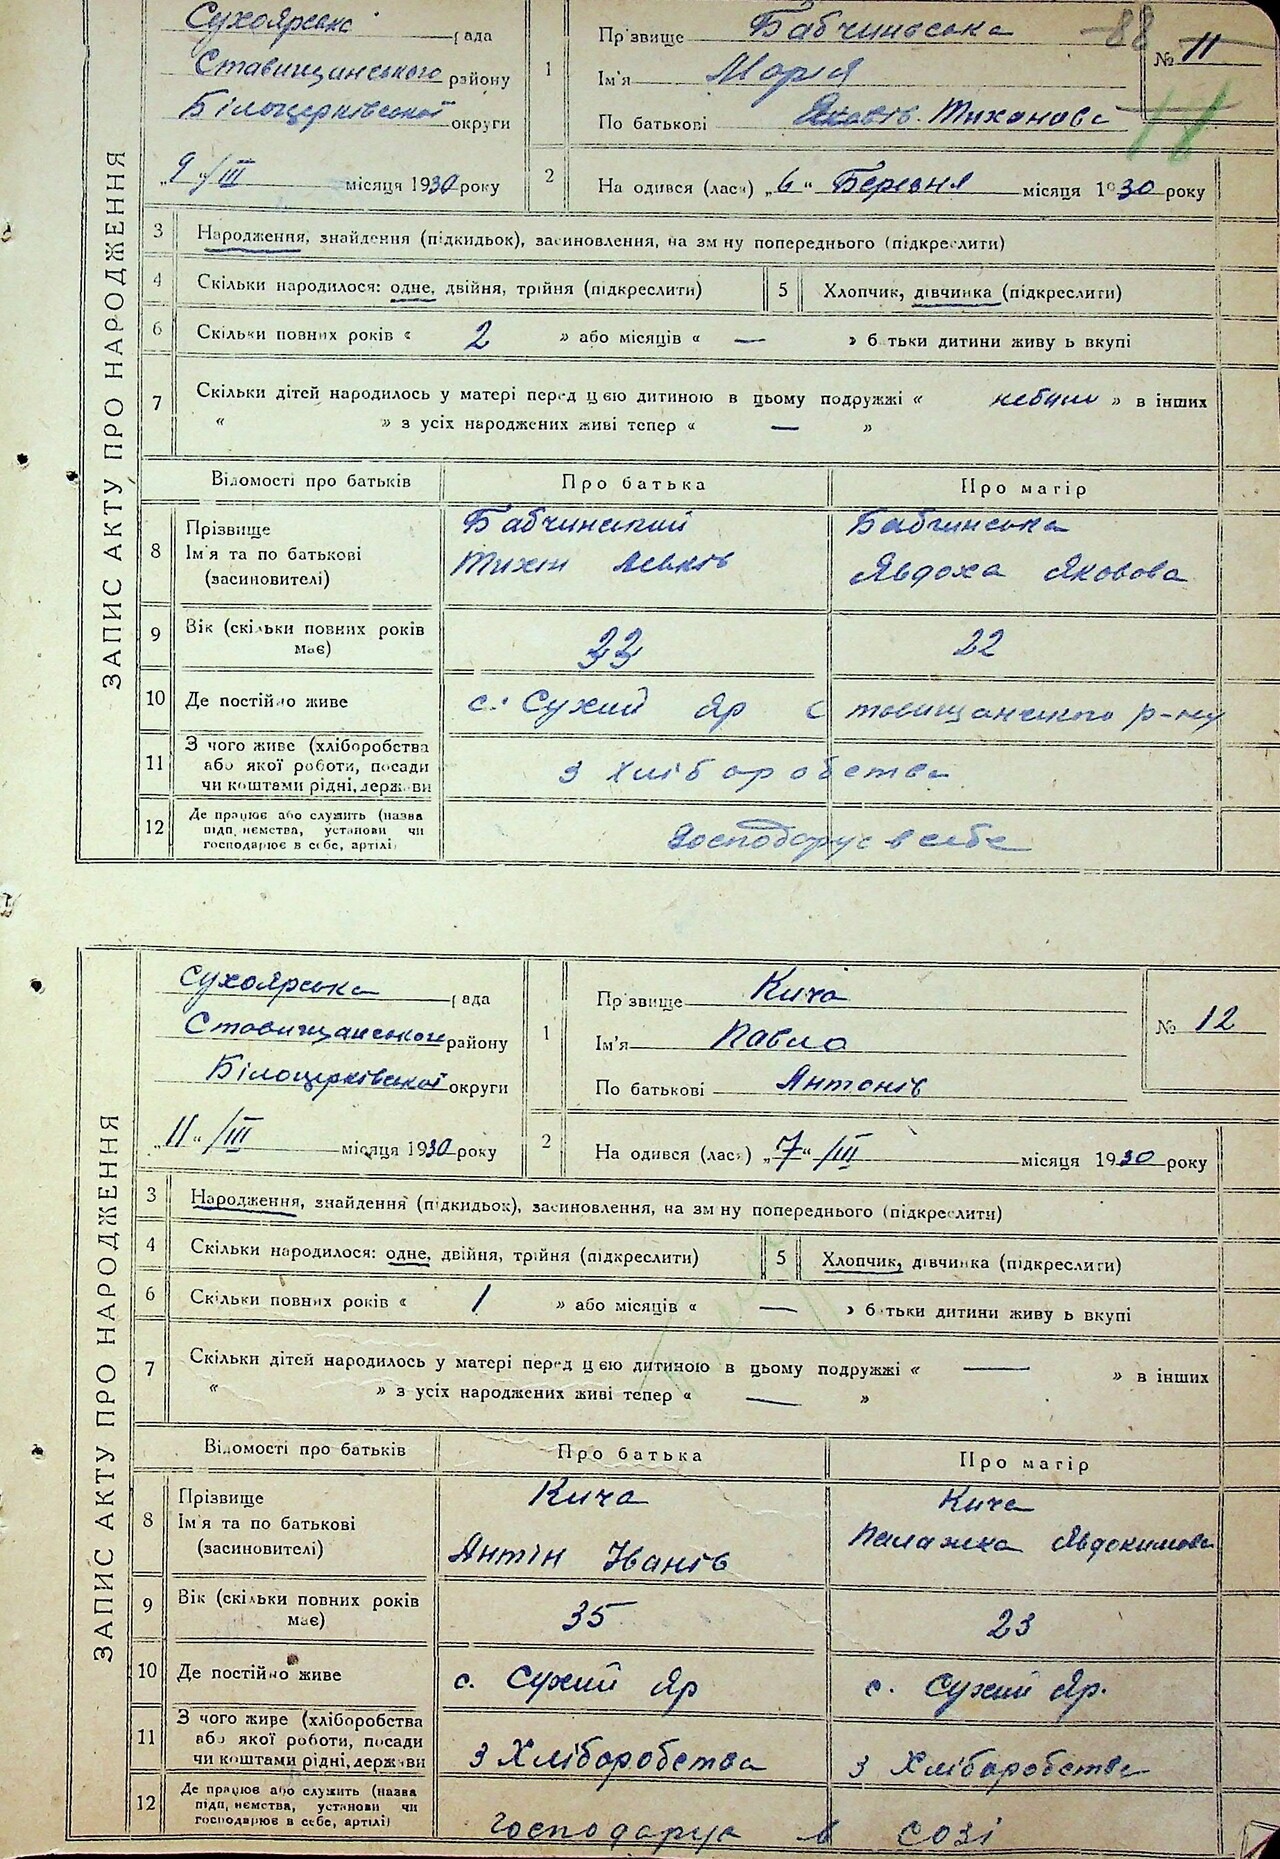 ЗАПИС АКТУ ПРО НАРОДЖЕННЯ
Сухоярська рада
Ставищанського району
Білоцерківської округи
„9“/III місяця 1930 року
1
Прізвище Бабчиноська
Ім'я Марія
По батькові Тиханова
88
№ 11
2
На одився (лася) „6“ Березня місяця 1930 року
3 Народження, знайдення (підкидьок), засиновлення, на зм ну попереднього (підкреслити)
4 Скільки народилося: одне, двійня, трійня (підкреслити)
5 Хлопчик, дівчинка (підкреслити)
6 Скільки повних років « 2 » або місяців « — » б тьки дитини живу ь вкупі
7 Скільки дітей народилось у матері перед цією дитиною в цьому подружжі « небули » в інших
« » з усіх народжених живі тепер « — »
Відомості про батьків Про батька Про матір
8 Прізвище
Ім'я та по батькові
(засиновителі)
Бабчинський
Тихон
Бабчинська
Явдоха Яковова
9 Вік (скільки повних років
має)
33 22
10 Де постійно живе с. Сухий Яр Ставищанського р-ну
11 З чого живе (хліборобства
або якої роботи, посади
чи коштами рідні, держави
з хліборобства
12 Де працює або служить (назва
підп, ємства, установи чи
господарює в себе, артілі)
Господарує в себе
ЗАПИС АКТУ ПРО НАРОДЖЕННЯ
Сухоярська рада
Ставищанського району
Білоцерківської округи
„11“/III місяця 1930 року
1
Прізвище Кича
Ім'я Павло
По батькові Антонів
№ 12
2
На одився (лася) „7“/III місяця 1930 року
3 Народження, знайдення (підкидьок), засиновлення, на зм ну попереднього (підкреслити)
4 Скільки народилося: одне, двійня, трійня (підкреслити)
5 Хлопчик, дівчинка (підкреслити)
6 Скільки повних років « 1 » або місяців « — » б тьки дитини живу ь вкупі
7 Скільки дітей народилось у матері перед цією дитиною в цьому подружжі « — » в інших
« » з усіх народжених живі тепер « — »
Відомості про батьків Про батька Про матір
8 Прізвище
Ім'я та по батькові
(засиновителі)
Кича
Антін Іванів
Кича
Палажка Явдокимова
9 Вік (скільки повних років
має)
35 23
10 Де постійно живе с. Сухий Яр с. Сухий Яр.
11 З чого живе (хліборобства
або якої роботи, посади
чи коштами рідні, держави
з Хліборобства з Хліборобства
12 Де працює або служить (назва
підп, ємства, установи чи
господарює в себе, артілі)
господарує в созі